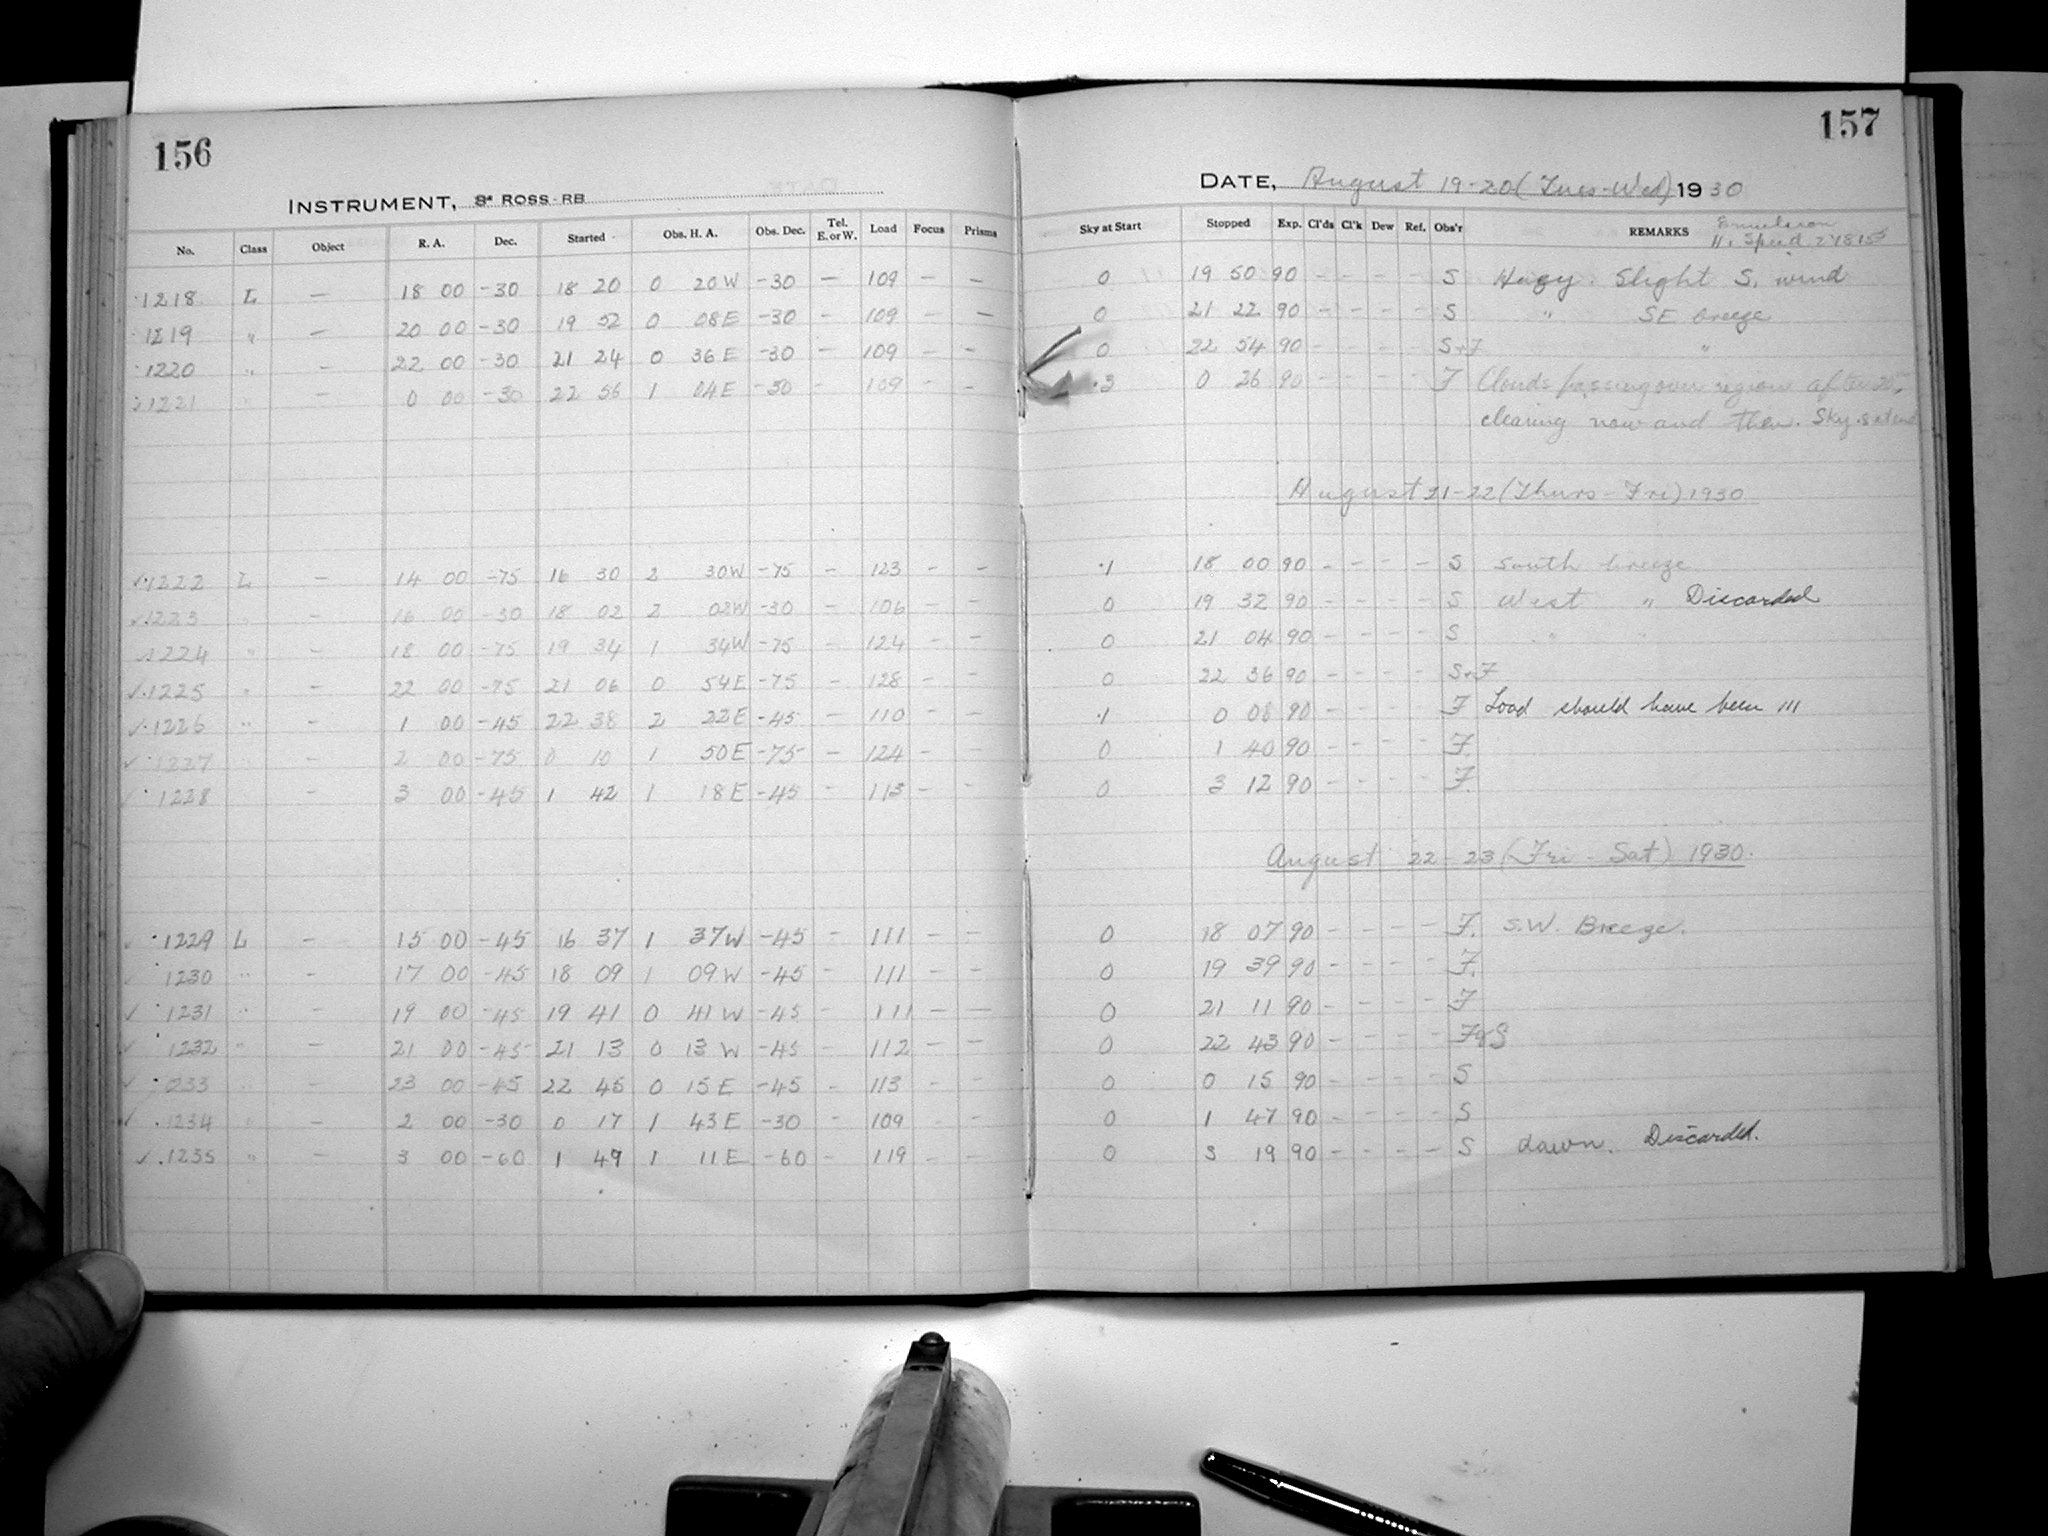 156
157
INSTRUMENT, 8" ROSS-RB
DATE, August 19-20 (Tues-Wed) 1930
No. Class Object R. A. Dec. Started Obs. H. A. Obs. Dec. Tel. E. or W. Load Focus Prisms Sky at Start Stopped Exp. Cl'ds Cl'k Dew Ref. Obs'r REMARKS Emulsion
Hi Speed
1218 L — 18 00 -30 18 20 0 20 W -30 — 109 — — 0 19 50 90 - - - - S Hazy. Slight S. wind
1219 " — 20 00 -30 19 52 0 08 E -30 — 109 — — 0 21 22 90 - - - - S " SE breeze
1220 " — 22 00 -30 21 24 0 36 E -30 — 109 — — 0 22 54 90 - - - - S+F "
1221 " — 0 00 -30 22 56 1 04 E -30 — 109 - - .3 0 26 90 - - - - F Clouds passing over region after
clearing now and then. Sky
August 21-22 (Thurs-Fri) 1930
✓ 1222 L — 14 00 -75 16 30 2 30 W -75 — 123 — — .1 18 00 90 - - - - S South breeze
✓ 1223 " — 16 00 -30 18 02 2 02 W -30 — 106 — — 0 19 32 90 - - - - S West " Discarded
1224 " — 18 00 -75 19 34 1 34 W -75 — 124 — — 0 21 04 90 - - - - S "
✓ 1225 " — 22 00 -75 21 06 0 54 E -75 — 128 - - 0 22 36 90 - - - - S+F
✓ 1226 " — 1 00 -45 22 38 2 22 E -45 — 110 - - .1 0 08 90 - - - - F Load should have been 111
✓ 1227 — 2 00 -75 0 10 1 50 E -75 — 124 - - 0 1 40 90 - - - - F.
✓ 1228 — 3 00 -45 1 42 1 18 E -45 - 113 - - 0 3 12 90 - - - - F.
August 22-23 (Fri-Sat) 1930.
✓ 1229 L — 15 00 -45 16 37 1 37 W -45 - 111 — — 0 18 07 90 - - - - F. S.W. Breeze.
✓ 1230 " - 17 00 -45 18 09 1 09 W -45 - 111 — — 0 19 39 90 - - - - F.
✓ 1231 " — 19 00 -45 19 41 0 41 W -45 - 111 — — 0 21 11 90 - - - - F
✓ 1232 " — 21 00 -45 21 13 0 13 W -45 - 112 — — 0 22 43 90 - - - - F&S
✓ 1233 — 23 00 -45 22 45 0 15 E -45 - 113 - - 0 0 15 90 - - - - S
✓ 1234 " — 2 00 -30 0 17 1 43 E -30 - 109 - - 0 1 47 90 - - - - S
✓ 1235 " — 3 00 -60 1 49 1 11 E -60 - 119 - - 0 3 19 90 - - - - S dawn. Discarded.